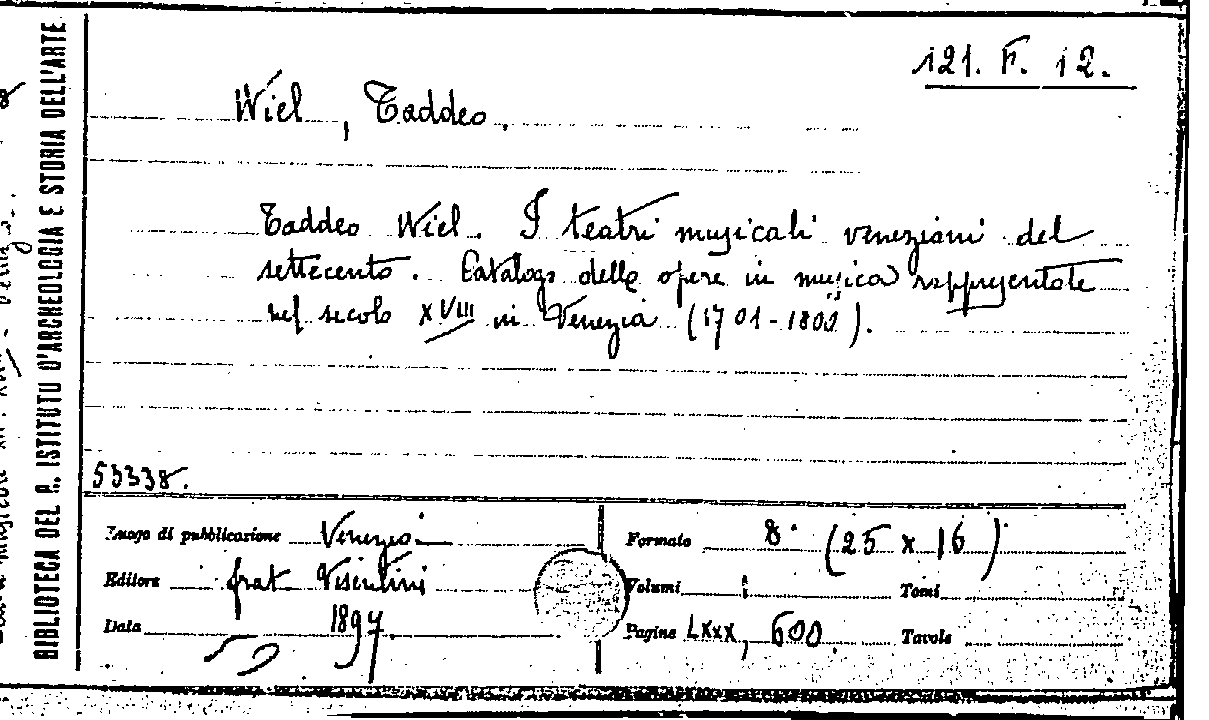 121. F. 12.
Wiel, Taddeo.
Taddeo Wiel. I teatri musicali veneziani del
settecento. Catalogo delle opere in musica rappresentate
nel secolo XVIII in Venezia (1701-1800).
53338.
Luogo di pubblicazione Venezia
Editore frat Visentini
Data 1897.
Formato 8° (25 x 16)
Volumi 1
Tomi
Pagine LXXX, 600.
Tavole
BIBLIOTECA DEL R. ISTITUTO D'ARCHEOLOGIA E STORIA DELL'ARTE